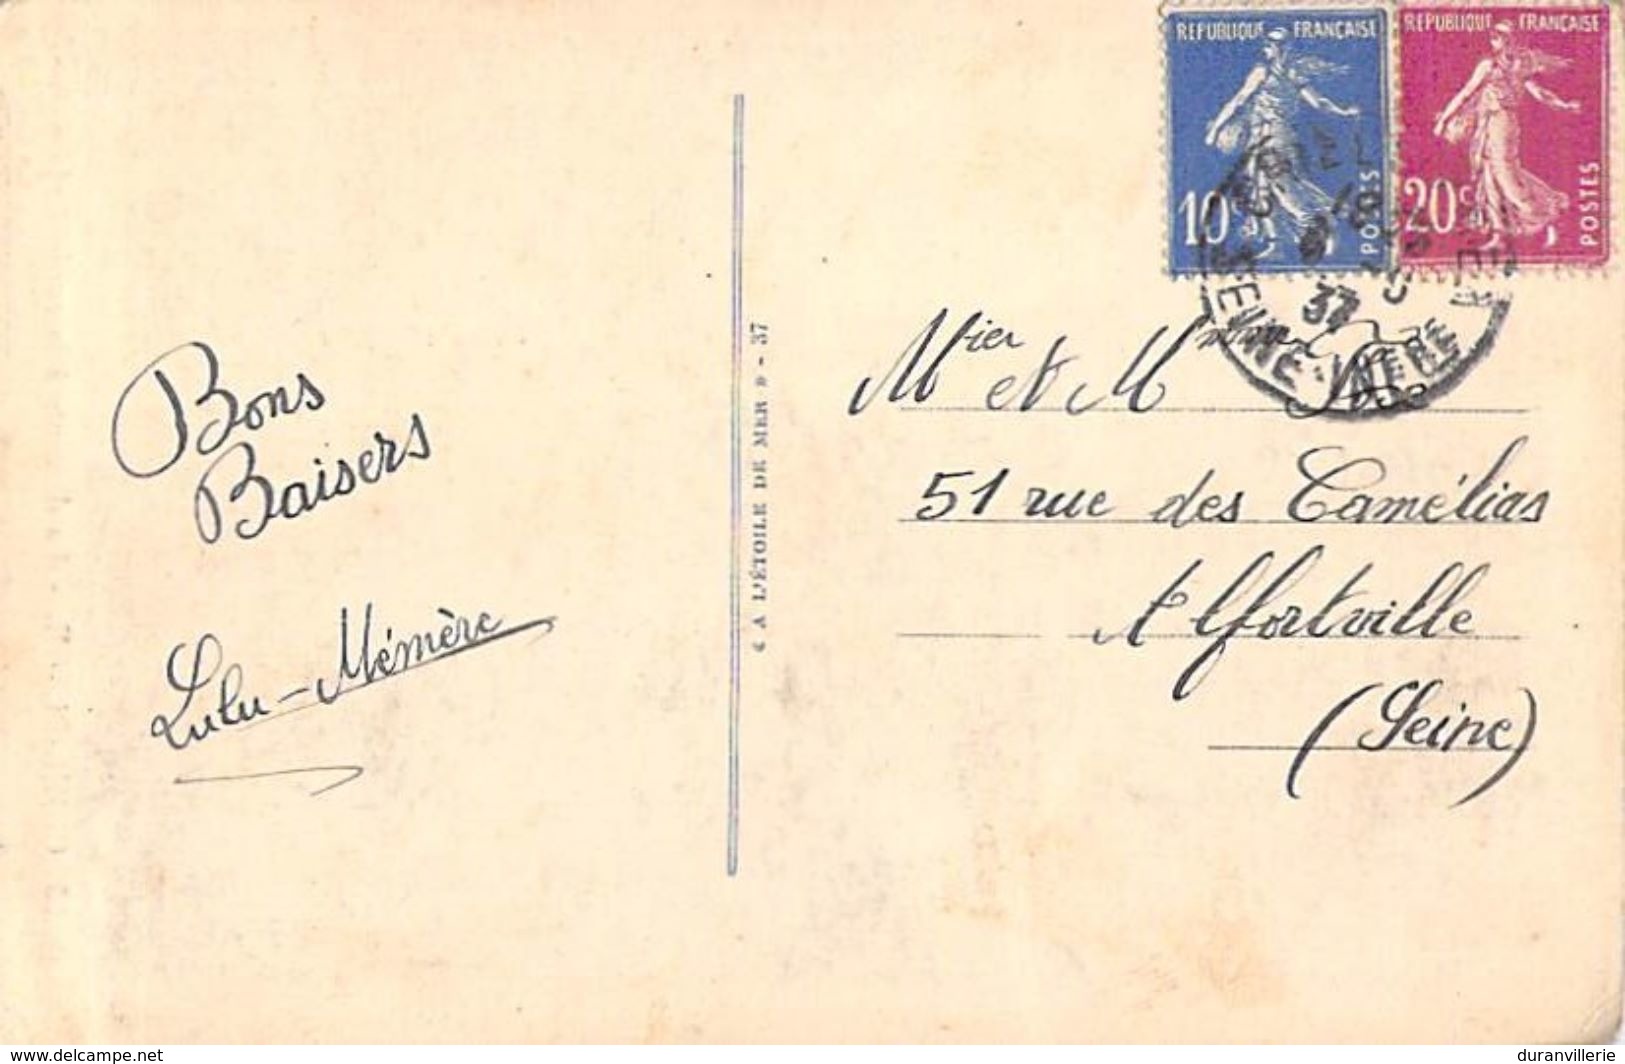 REPUBLIQUE FRANÇAISE
10c
POSTES
REPUBLIQUE FRANÇAISE
20c
POSTES
37
SEINE-INFRE
Bons
Baisers
Lulu-Mémère
« A L'ÉTOILE DE MER » - 37
Mier et Mme
51 rue des Camélias
Alfortville
(Seine)
www.delcampe.net
duranvillerie